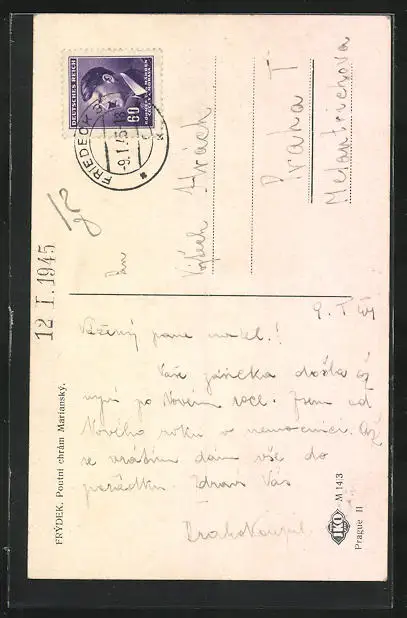 DEUTSCHES REICH
60
FRIEDECK
-9.1.45-18
12 I. 1945
Pan
Vojtěch Hrách
Praha I
Melantrichova
FRÝDEK. Poutní chrám Marianský.
9. I. 45
Vážený pane
Vaše zásilka došla až
nyní po Novém roce. Jsem od
Nového roku v nemocnici. Až
se vrátím dám vše do
pořádku. Zdraví Vás
M 143
Prague II